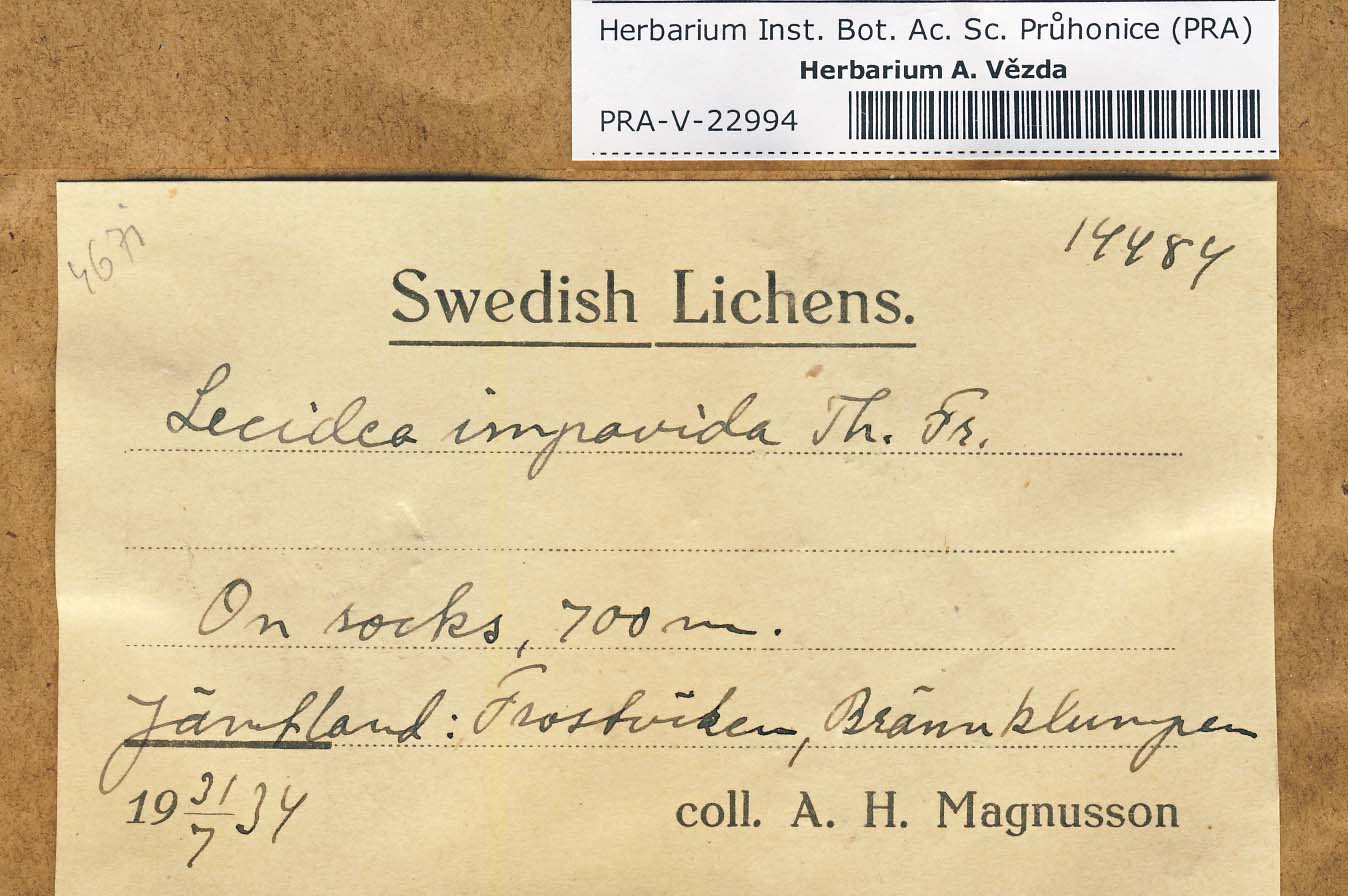 Herbarium Inst. Bot. Ac. Sc. Průhonice (PRA)
Herbarium A. Vězda
PRA-V-22994
4671
14484
Swedish Lichens.
Lecidea impavida Th. Fr.
On rocks, 700 m.
Jämtland: Frostviken, Brännklumpen
19 31/7 34
coll. A. H. Magnusson